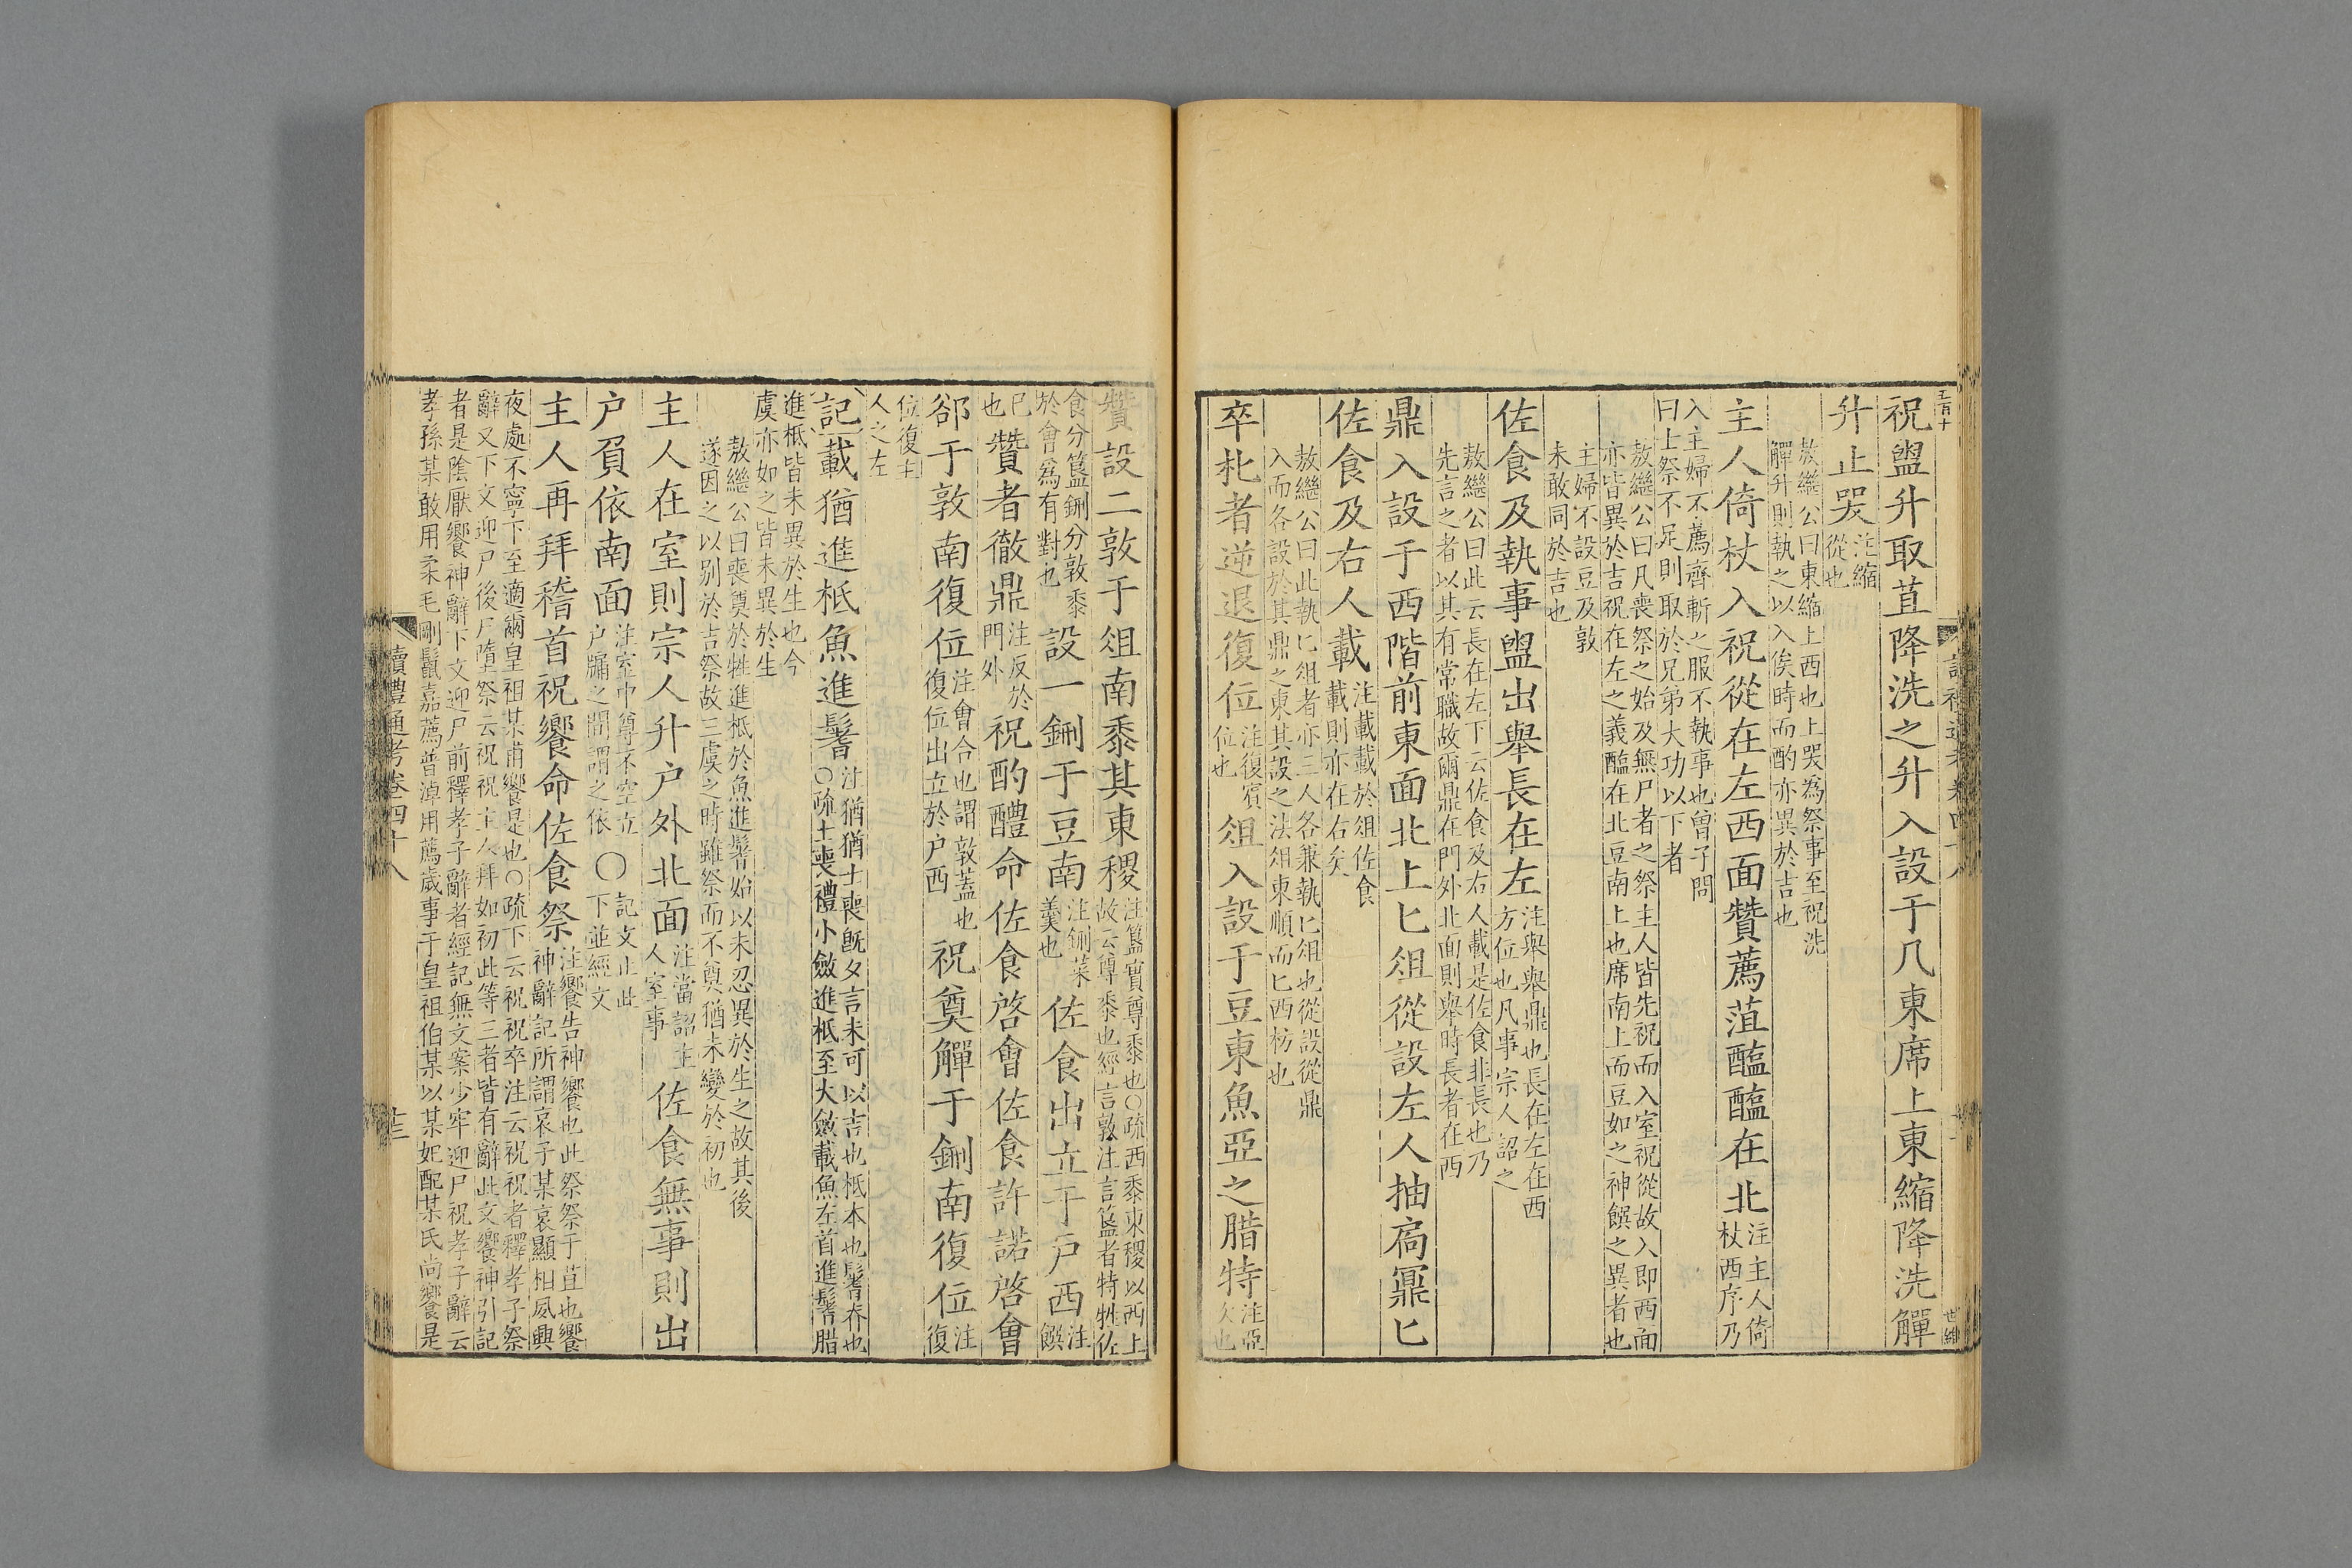 祝盥升取苴降洗之升入設于几東席上東縮降洗觶
升止哭
注縮
從也
敖繼公曰東縮上西也上哭爲祭事至祝洗
觶升則執之以入俟時而酌亦異於吉也
主人倚杖入祝從在左西面贊薦菹醢醢在北
注主人倚
杖西序乃
入主婦不薦齊斬之服不執事也曾子問
曰士祭不足則取於兄弟大功以下者
敖繼公曰凡喪祭之始及無尸者之祭主人皆先祝而入室祝從故入即西面
亦皆異於吉祝在左之義醢在北豆南上也席南上而豆如之神饌之異者也
主婦不設豆及敦
未敢同於吉也
佐食及執事盥出舉長在左
注舉舉鼎也長在左在西
方位也凡事宗人詔之
敖繼公曰此云長在左下云佐食及右人載是佐食非長也乃
先言之者以其有常職故爾鼎在門外北面則舉時長者在西
鼎入設于西階前東面北上匕俎從設左人抽扃鼏匕
佐食及右人載
注載載於俎佐食
載則亦在右矣
敖繼公曰此執匕俎者亦三人各兼執匕俎也從設從鼎
入而各設於其鼎之東其設之法俎東順而匕西枋也
卒朼者逆退復位
注復賓
位也
俎入設于豆東魚亞之腊特
注亞
次也
贊設二敦于俎南黍其東稷
注簋實尊黍也○疏西黍東稷以西上
故云尊黍也經言敦注言簋者特牲佐
食分簋鉶分敦黍
於會爲有對也
設一鉶于豆南
注鉶菜
羹也
佐食出立于戶西
注
饌
已
也
贊者徹鼎
注反於
門外
祝酌醴命佐食啓會佐食許諾啓會
郤于敦南復位
注會合也謂敦蓋也
復位出立於户西
祝奠觶于鉶南復位
注
復
位復主
人之左
記載猶進柢魚進鬐
注猶猶士喪既夕言未可以吉也柢本也鬐脊也
○疏士喪禮小斂進柢至大斂載魚左首進鬐腊
進柢皆未異於生也今
虞亦如之皆未異於生
敖繼公曰喪奠於牲進柢於魚進鬐始以未忍異於生之故其後
遂因之以别於吉祭故三虞之時雖祭而不奠猶未變於初也
主人在室則宗人升户外北面
注當詔主
人室事
佐食無事則出
户負依南面
注室中尊不空立
户牖之間謂之依
○
記文止此
下並經文
主人再拜稽首祝饗命佐食祭
注饗告神饗也此祭祭于苴也饗
神辭記所謂哀子某哀顯相夙興
夜處不寧下至適爾皇祖某甫饗是也○疏下云祝祝卒注云祝祝者釋孝子祭
辭又下文迎尸後尸隋祭云祝祝主人拜如初此等三者皆有辭此文饗神引記
者是陰厭饗神辭下文迎尸前釋孝子辭者經記無文案少牢迎尸祝孝子辭云
孝孫某敢用柔毛剛鬣嘉薦普淖用薦歲事于皇祖伯某以某妃配某氏尚饗是
讀禮通考卷四十八